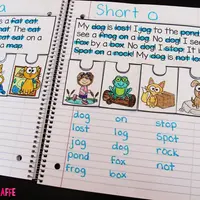 a
is a fat cat.
at. The cat
cat on a
a map
Short o
My dog is lost! I jog to the pond
see a frog on a log. No dog! I
fox by a box. No dog! I stop. It
Spot on a rock! My dog is not los
dog on stop
lost log Spot
jog dog rock
pond fox not
frog box
AFFE